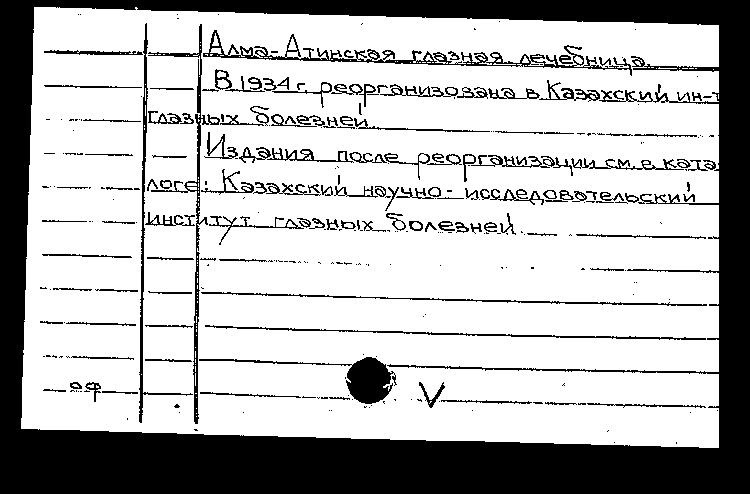 Алма-Атинская глазная лечебница.
В 1934 г. реорганизована в Казахский ин-т
глазных болезней.
Издания после реорганизации см. в ката-
логе: Казахский научно-исследовательский
институт глазных болезней.
оф
V